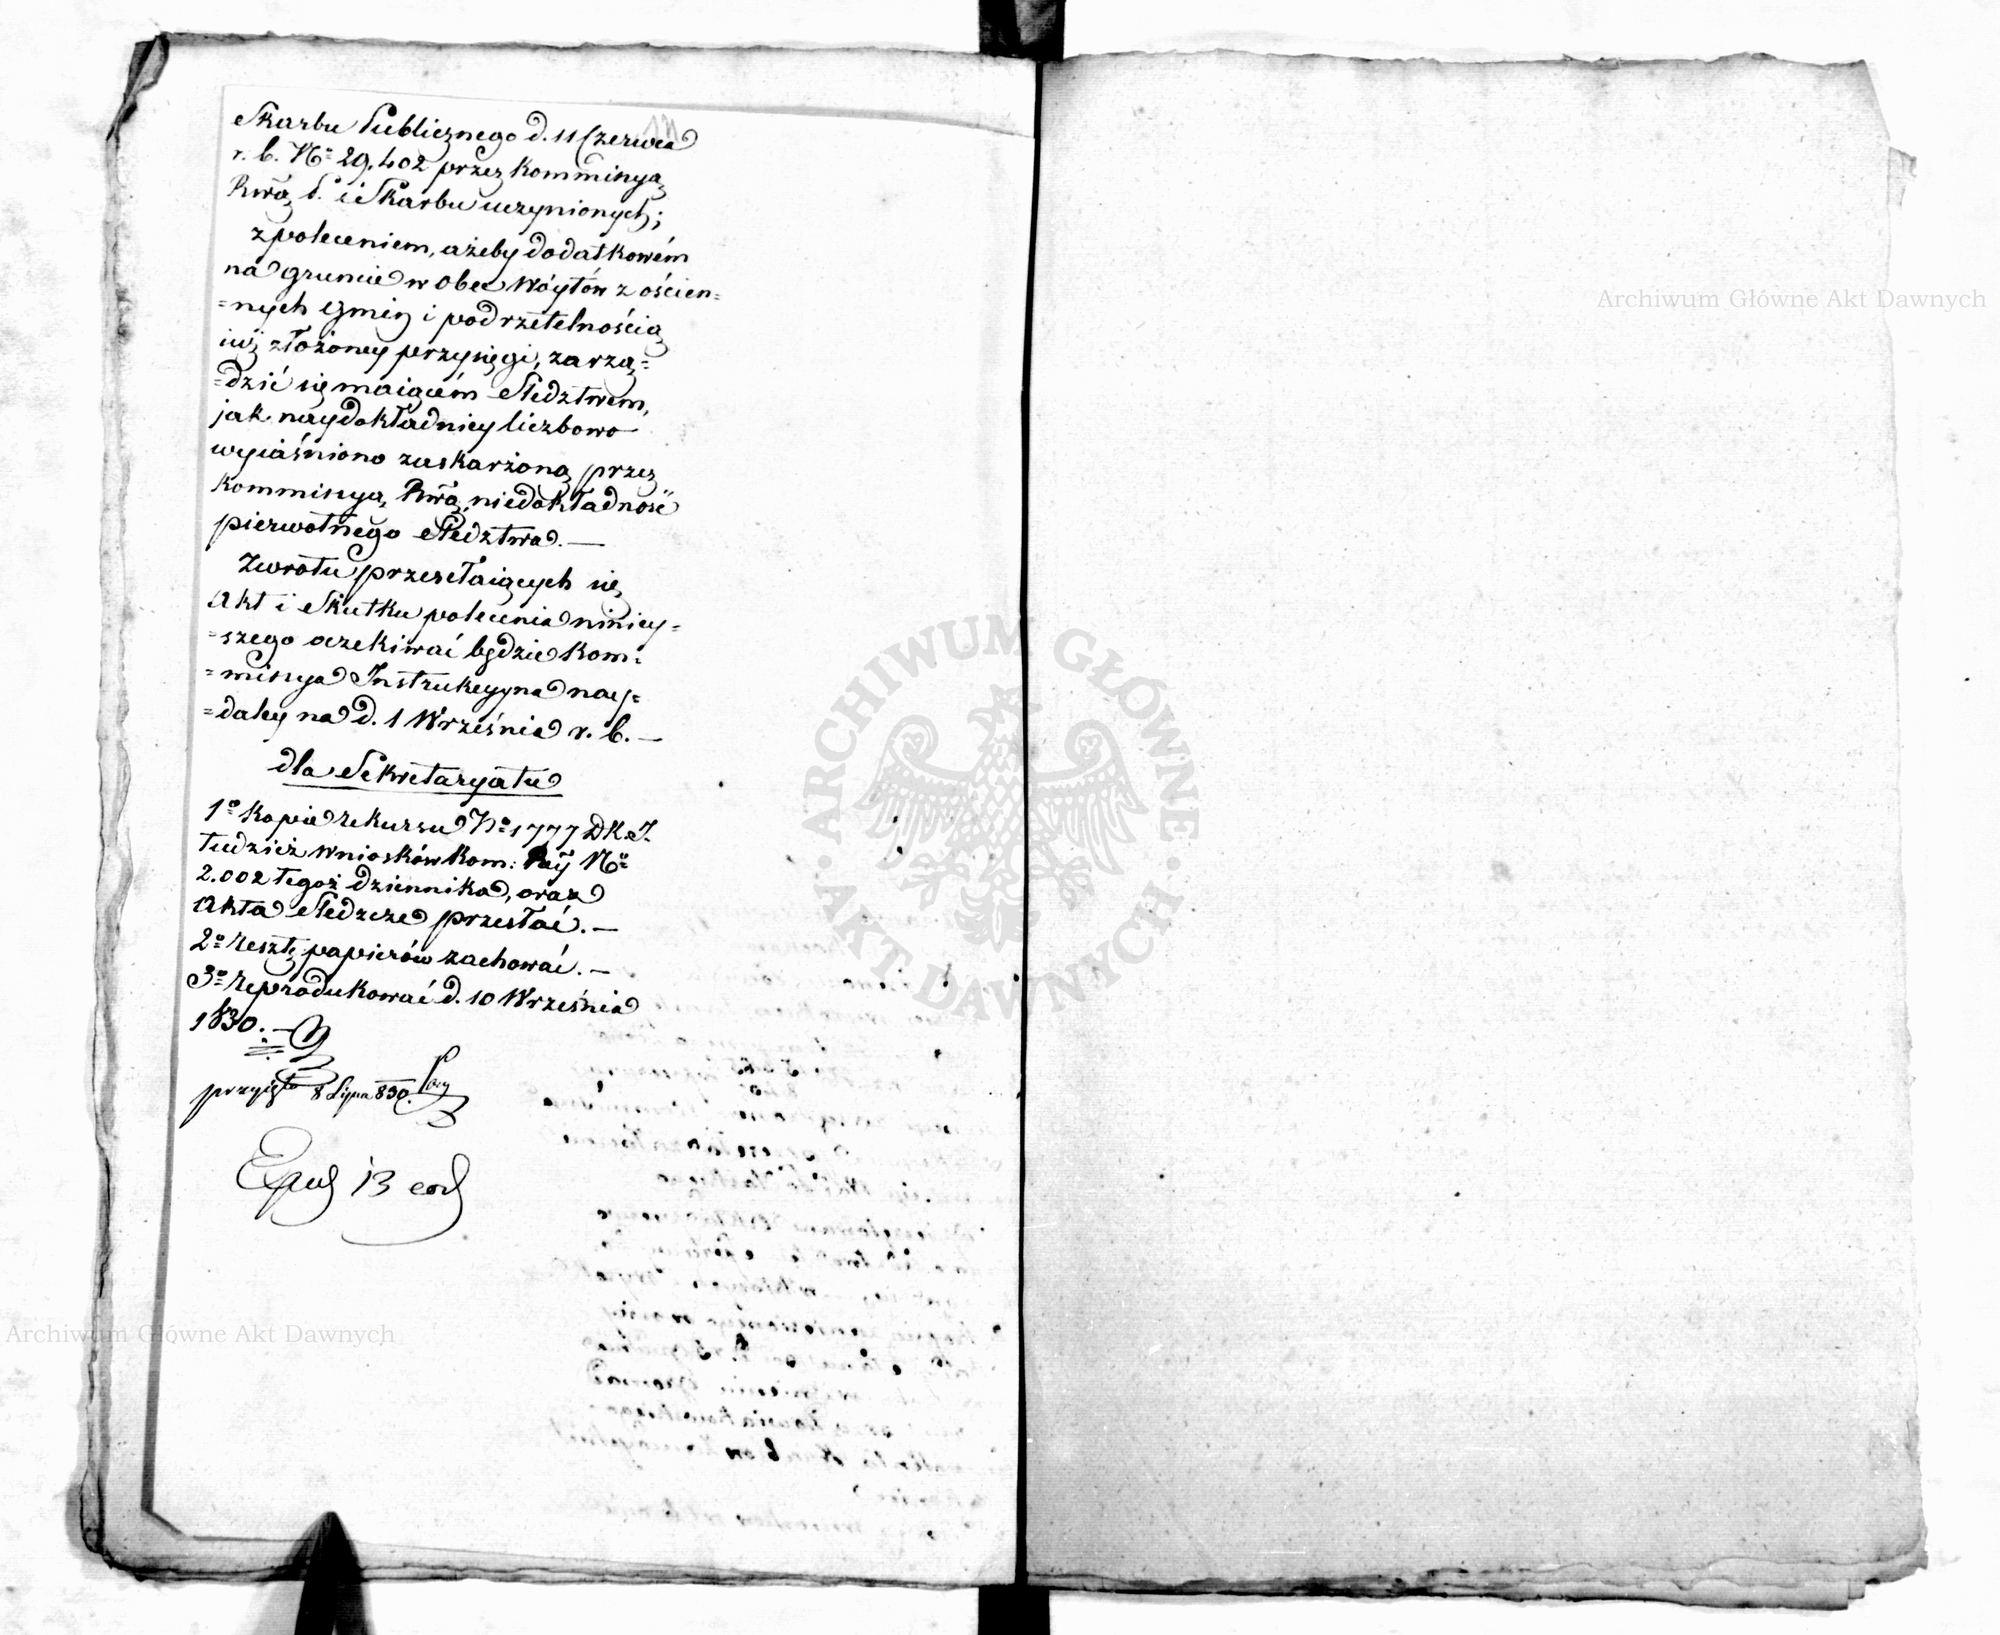 Skarbu Publicznego d. 11 Czerwca
r. b. No 29,402 przez Kommissyą
Rwą P. i Skarbu uczynionych;
z poleceniem, ażeby dodatkowém
na gruncie w obec Wóytów z ościen=
=nych Gmin i pod rzetelnością
iuż złożoney przysięgi, zarzą=
=dzić się maiącém Śledztwem,
jak naydokładniey liczbowo
wyiaśniono zaskarżoną przez
Kommissyą Rwą niedokładność
pierwotnego Śledztwa. —
Zwrotu przesełaiących się
Akt i Skutku polecenia niniey=
=szego oczekiwać będzie Kom=
=missya Instrukcyyna nay=
=daley na d. 1 Września r. b. —
dla Sekretaryatu
1o Kopie rekursu No 1777 DK.I.
tudzież wniosków Kom: Rwy No
2.002 tegoż dziennika, oraz
Akta Śledcze przesłać. —
2o Resztę papierów zachować. —
3o Reprodukować d. 10 Września
1830. —
przyięto 8 Lipca 830.
Exped 13 eod
Archiwum Główne Akt Dawnych
Archiwum Główne Akt Dawnych
ARCHIWUM GŁÓWNE
AKT DAWNYCH